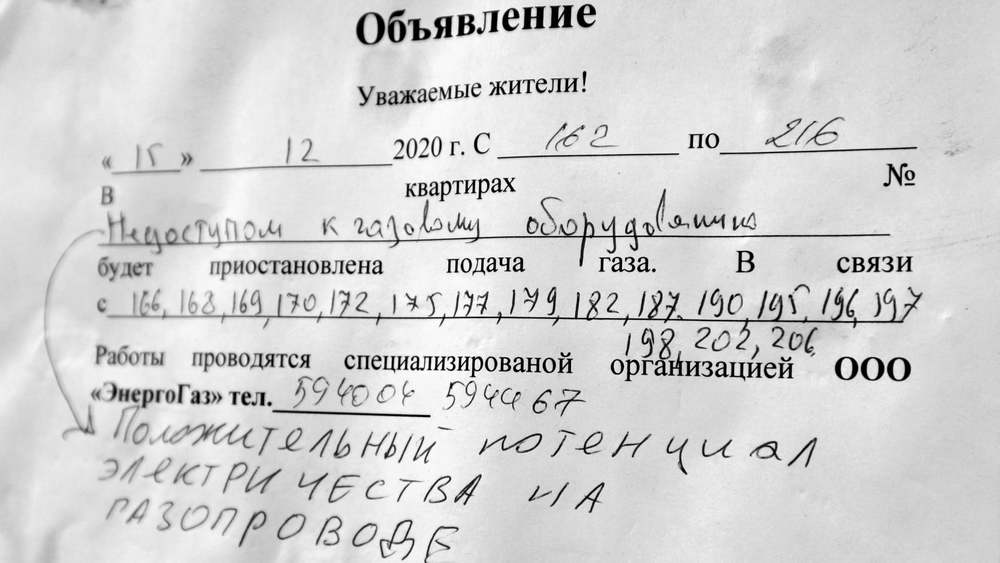 Объявление
Уважаемые жители!
«15» 12 2020 г. С 162 по 216
В квартирах №
Недоступом к газовому оборудованию
будет приостановлена подача газа. В связи
с 166, 168, 169, 170, 172, 175, 177, 179, 182, 187. 190, 195, 196, 197
198, 202, 206
Работы проводятся специализированой организацией ООО
«ЭнергоГаз» тел. 594004 594467
Положительный потенциал
ЭЛЕКТРИЧЕСТВА НА
ГАЗОПРОВОДЕ